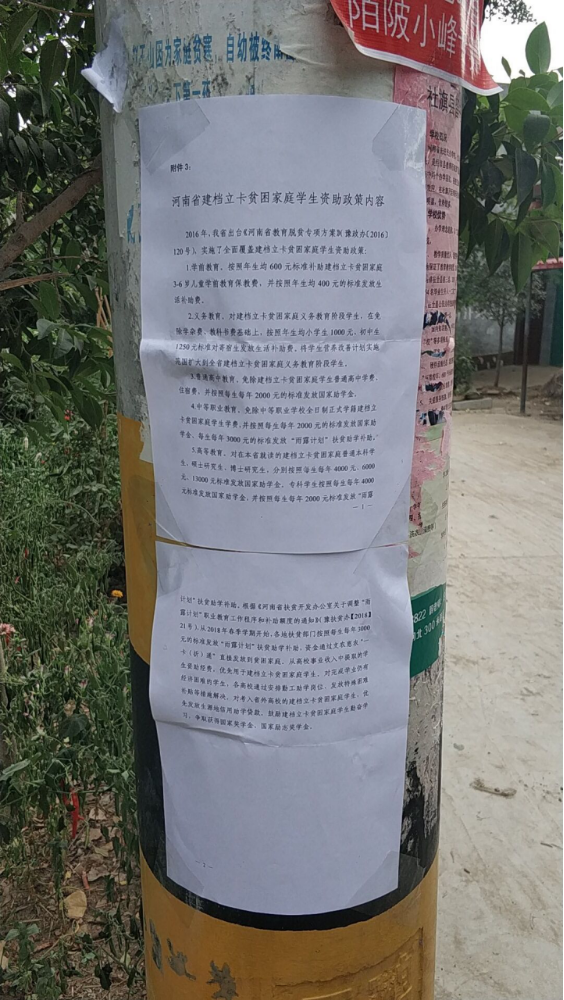 陌陂小峰
小因为家庭贫寒，自幼被终
社旗县
附件3：
河南省建档立卡贫困家庭学生资助政策内容
2016年，我省出台《河南省教育脱贫专项方案》（豫政办〔2016〕
120号），实施了全面覆盖建档立卡贫困家庭学生资助政策：
1.学前教育。按照年生均600元标准补助建档立卡贫困家庭
3-6岁儿童学前教育保教费，并按照生均400元的标准发放生
活补助费。
2.义务教育。对建档立卡贫困家庭义务教育阶段学生，在免
除学杂费、教科书费基础上，按照年生均小学生1000元、初中生
1250元标准对寄宿生发放生活补助费。将学生营养改善计划实施
范围扩大到全省建档立卡贫困家庭义务教育阶段学生。
3.普通高中教育。免除建档立卡贫困家庭学生普通高中学费、
住宿费，并按照每生每年2000元的标准发放国家助学金。
4.中等职业教育。免除中等职业学校全日制正式学籍建档立
卡贫困家庭学生学费，并按照每生每年2000元的标准发放国家助
学金、每生每年3000元的标准发放“雨露计划”扶贫助学补助。
5.高等教育。对在本省就读的建档立卡贫困家庭普通本科学
生、硕士研究生、博士研究生，分别按照每生每年4000元、6000
元、13000元标准发放国家助学金。专科学生按照每生每年4000
元标准发放国家助学金、并按照每生每年2000元标准发放“雨露
—1—
计划”扶贫助学补助。根据《河南省扶贫开发办公室关于调整“雨
露计划”职业教育工作程序和补助额度的通知》（豫扶贫办〔2018〕
21号），从2018年春季学期开始，各地扶贫部门按照每生每年3000
元的标准发放“雨露计划”扶贫助学补助，资金通过支农惠农“一
卡（折）通”直接发放到贫困家庭。从高校事业收入中提取的学
生资助经费，优先用于建档立卡贫困家庭学生。对完成学业仍有
经济困难的学生，各高校通过安排勤工助学岗位、发放特殊困难
补贴等措施解决。对考入省外高校的建档立卡贫困家庭学生，优
先发放生源地信用助学贷款。鼓励建档立卡贫困家庭学生勤奋学
习，争取获得国家奖学金、国家励志奖学金。
-2-